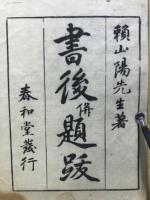 賴山陽先生著
書後併題跋
泰和堂發行